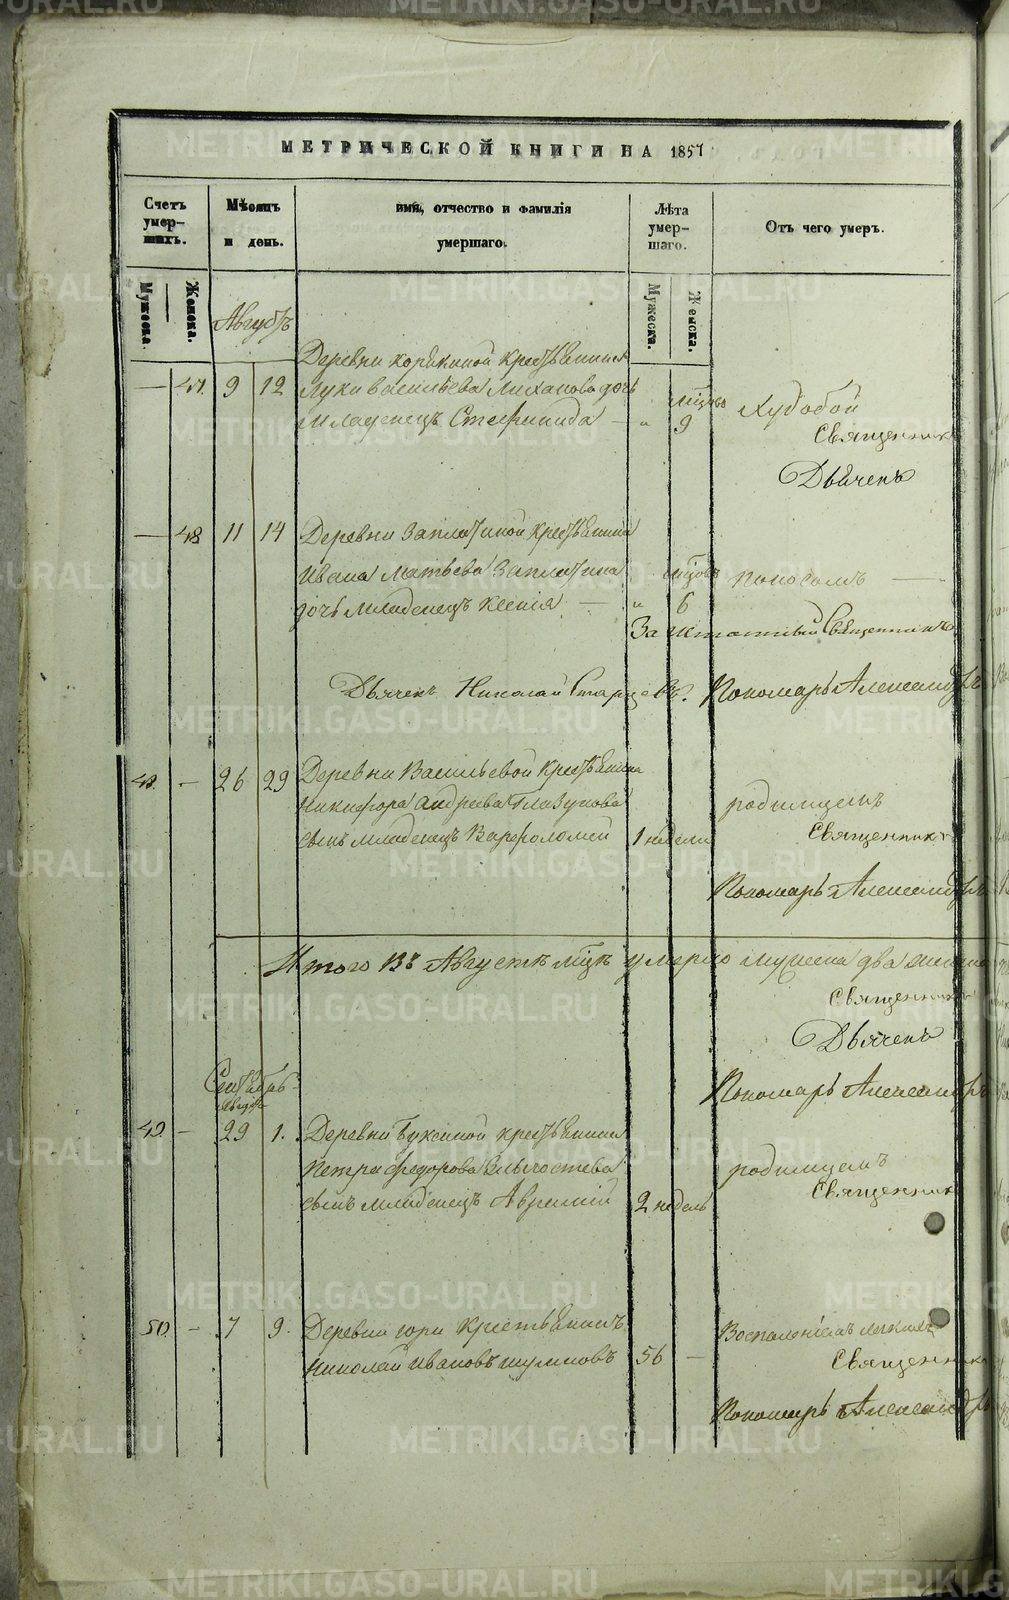 МЕТРИЧЕСКОЙ КНИГИ НА 1857
Счетъ умер-шихъ.
Мѣсяцъ и день.
имя, отчество и фамилія умершаго.
Лѣта умер-шаго.
Отъ чего умеръ.
Мужеска. Женска.
Мужеска. Женска.
Августъ
Деревни
— 47. 9 12 Луки Васильева дочь мцовъ
младенецъ Степанида — „ 9 Худобой
Священникъ
Дьячекъ
— 48 11 14 Деревни Заплатиной крестьянина
Ивана Матвѣева Заплатина мцовъ поносомъ —
дочь младенецъ Ксенія — „ 6
Заштатный Священникъ
Дьячекъ Николай Старцевъ. Пономарь Александръ
48. — 26 29 Деревни Васильевой крестьянина
Никифора Андреева Глазунова родимцемъ
сынъ младенецъ Варфоломей 1 недели
Священникъ
Пономарь Александръ
Итого въ Августѣ мцѣ умерло мужеска два женска
Священникъ
Дьячекъ
Пономарь Александръ
Сентябрь
августа
49. — 29 1. Деревни крестьянина
Петра Федорова родимцемъ
сынъ младенецъ Аврамій 2 недель
Священникъ
50. — 7 9. Деревни горы крестьянинъ Воспаленіемъ легкихъ
Николай Ивановъ 56 —
Священникъ
Пономарь Александръ
METRIKI.GASO-URAL.RU